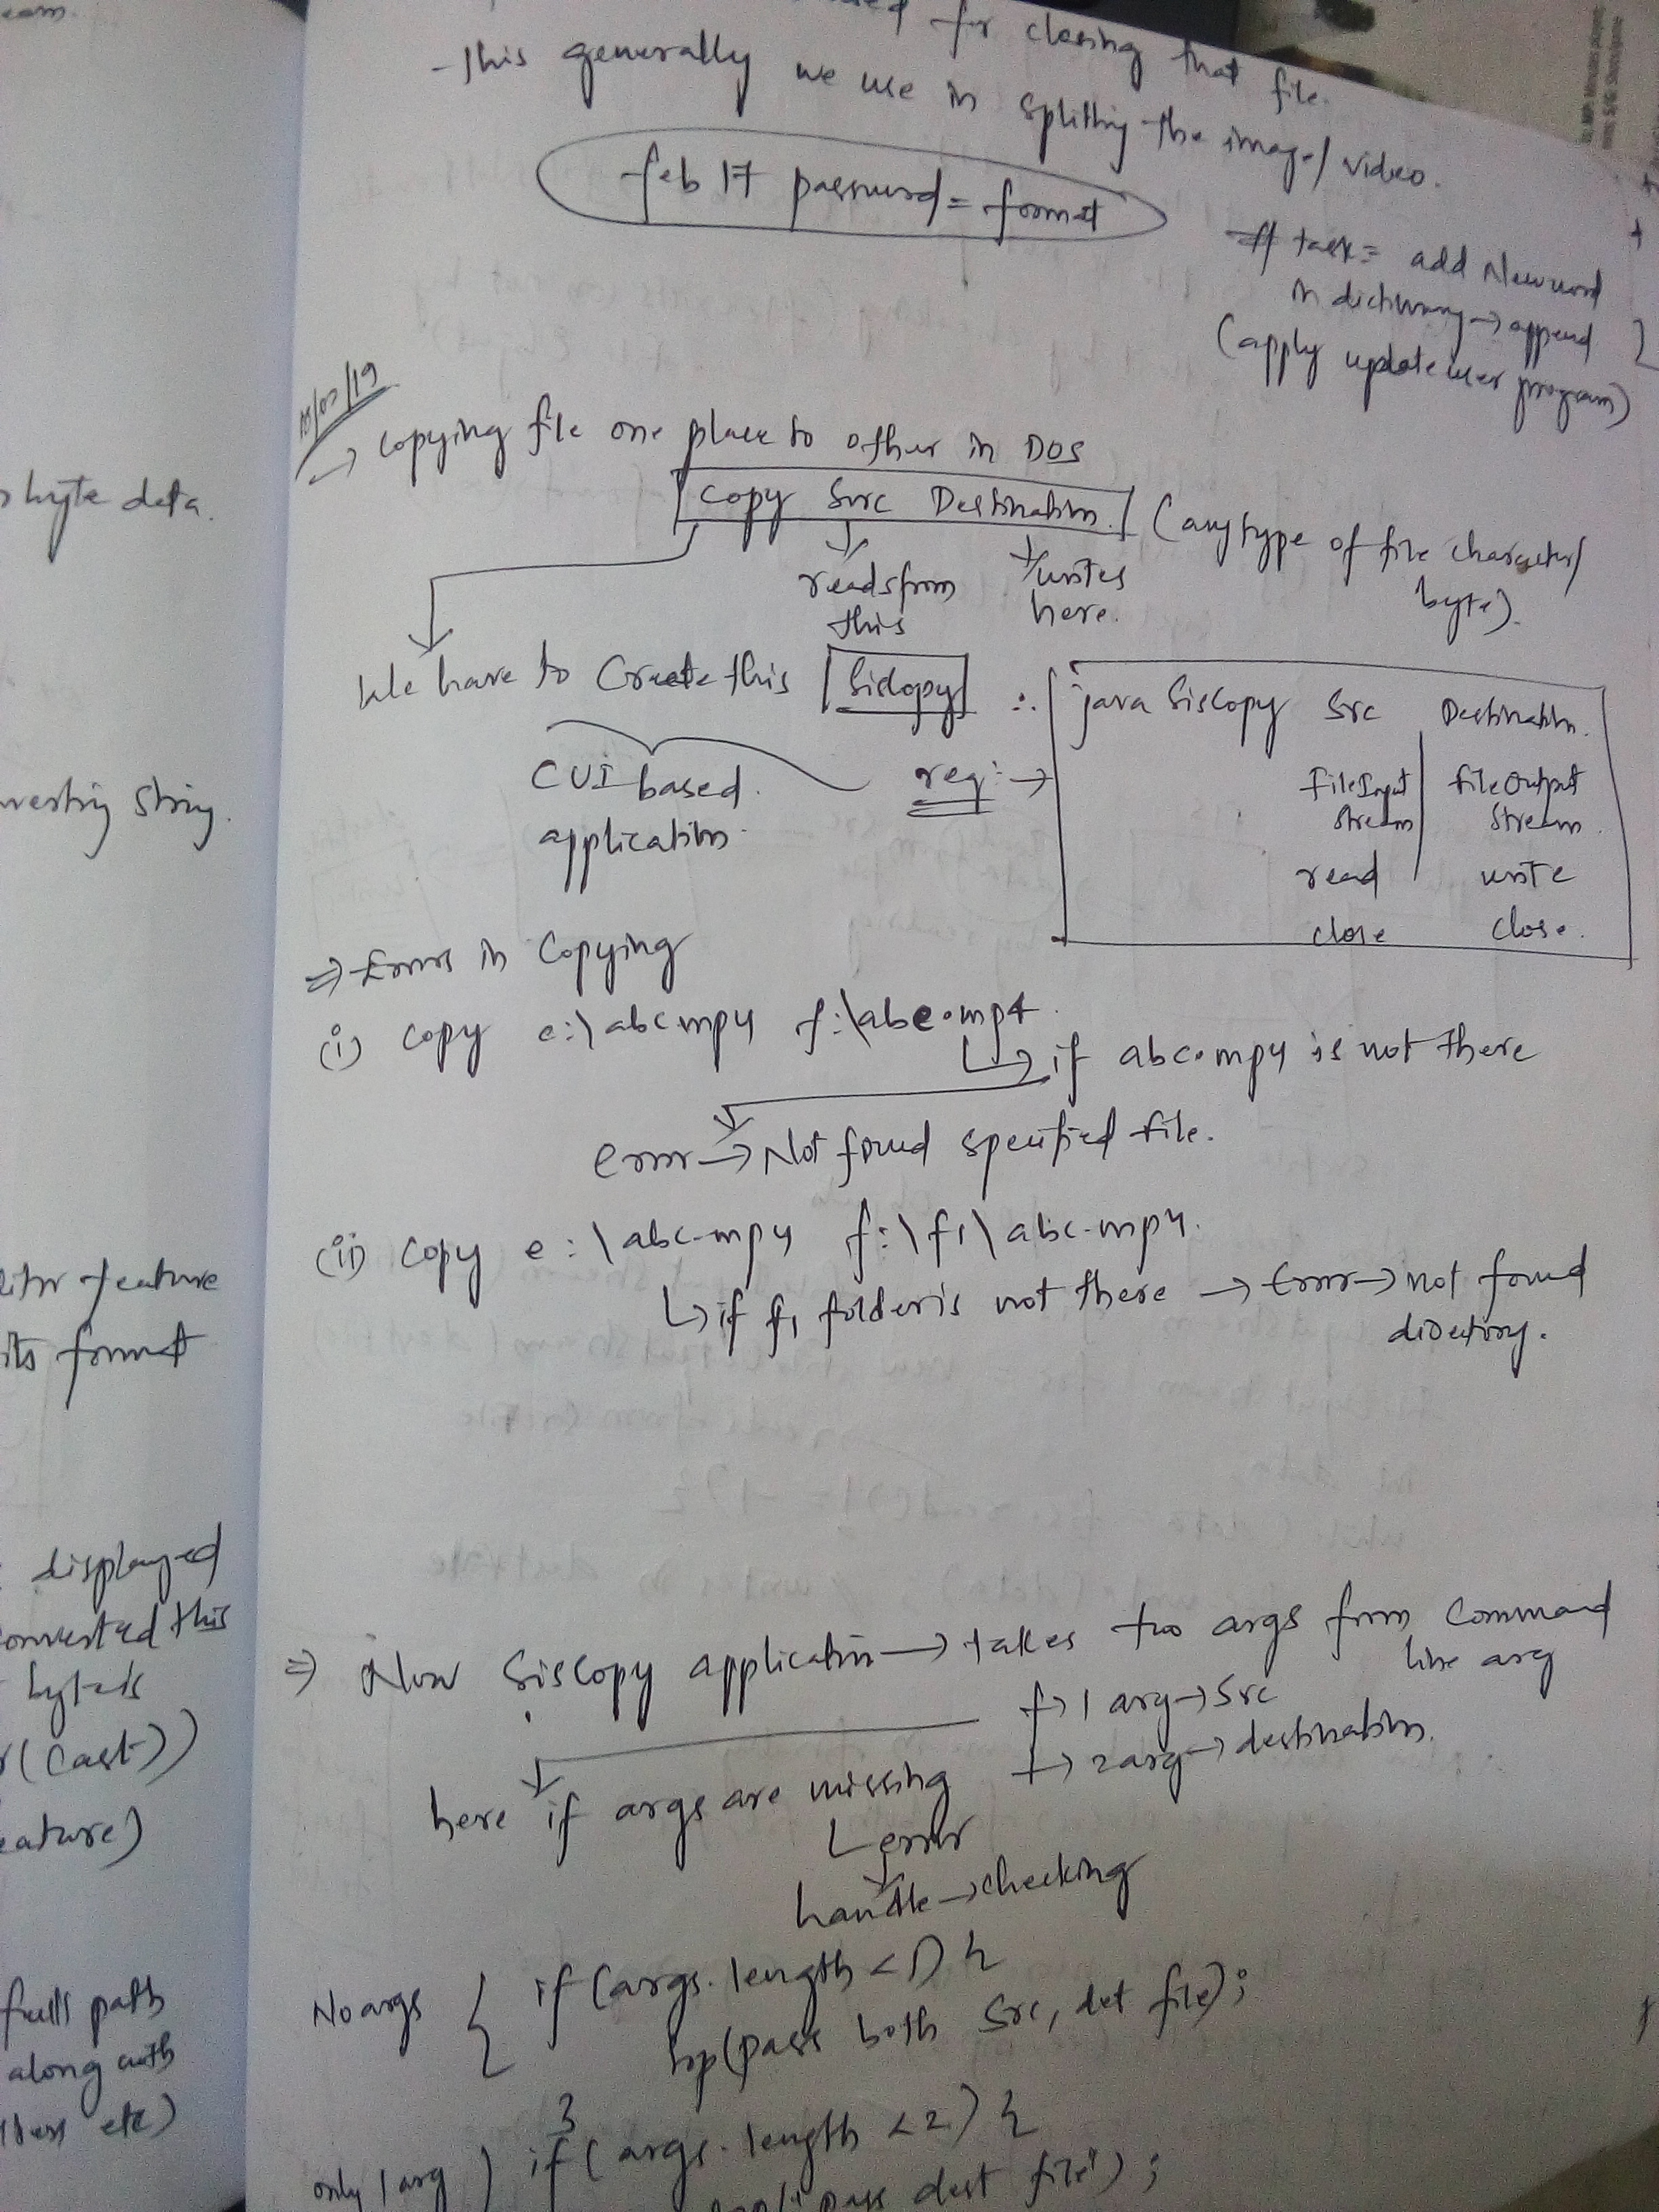 eam.
byte data.
verting string.
feature
its format
displayed
converted this
bytes
(cast))
eature)
full path
along with
etc)
for closing that file.
- This generally we use in splitting the image/video.
feb 17 password = format
# task = add New word
in dictionary → append
(apply update user program)
/02/19
→ copying file one place to other in DOS
copy Src Destination. (any type of file character/
byte).
reads from
this
writes
here.
We have to Create this Siscopy ∴ java Siscopy Src Destination.
CUI based
application.
req: →
FileInput
Stream
fileOutput
Stream.
read write
close close.
⇒ Errors in Copying
(i) copy e:\abc.mp4 f:\abc.mp4
↳ if abc.mp4 is not there
error → Not found specified file.
(ii) copy e:\abc.mp4 f:\f1\abc.mp4.
↳ if f1 folder is not there → Error → not found
directory.
⇒ Now Siscopy application → takes two args from Command
line arg
→ 1 arg → Src
→ 2 arg → destination.
here if args are missing
error
handle → checking
No args { if (args.length < 1) {
sop(pass both Src, det file);
}
only 1 arg ) if (args.length < 2) {
sop("pass dest file");